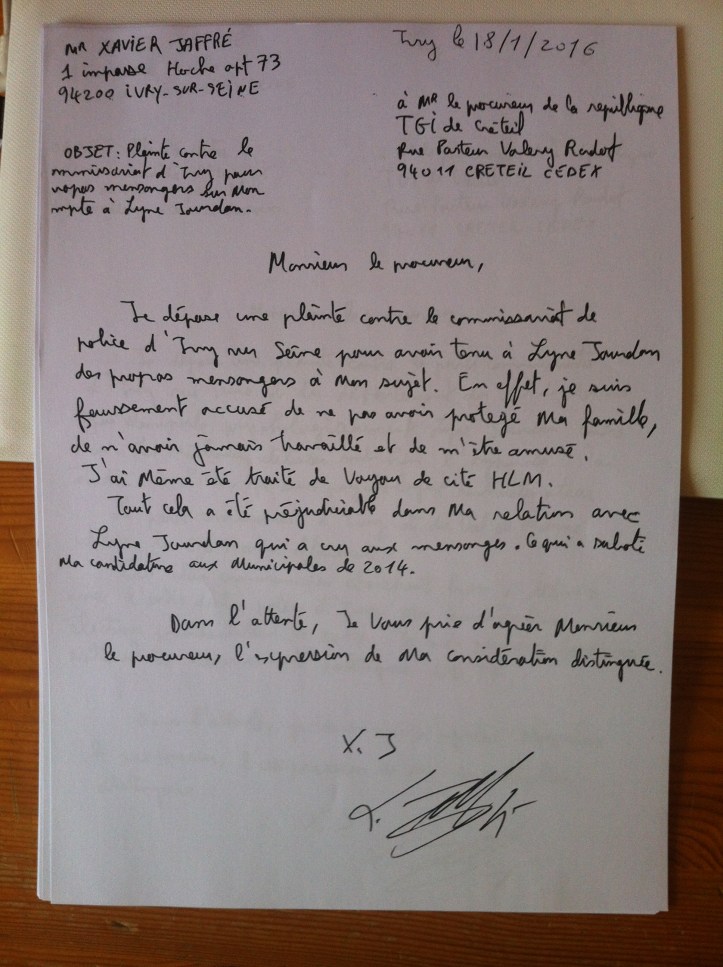 MR XAVIER JAFFRÉ
1 impasse Hoche apt 73
94200 IVRY-SUR-SEINE
Ivry le 18/1/2016
à MR le procureur de la république
TGI de Créteil
Rue Pasteur Valery Radot
94011 CRETEIL CEDEX
OBJET: Plainte contre le
mmissariat d'Ivry pour
ropos mensongers sur Mon
mpte à Lyne Jourdan.
Monsieur le procureur,
Je dépose une plainte contre le commissariat de
police d'Ivry sur Seine pour avoir tenu à Lyne Jourdan
des propos mensongers à Mon sujet. En effet, je suis
faussement accusé de ne pas avoir protegé Ma famille,
de n'avoir jamais travaillé et de m'être amusé.
J'ai Même été traité de Voyou de cité HLM.
Tout cela a été préjudiciable dans Ma relation avec
Lyne Jourdan qui a cru aux mensonges. Ce qui a saboté
Ma candidature aux Municipales de 2014.
Dans l'attente, Je Vous prie d'agréer Monsieur
le procureur, l'expression de Ma considération distinguée.
X. J